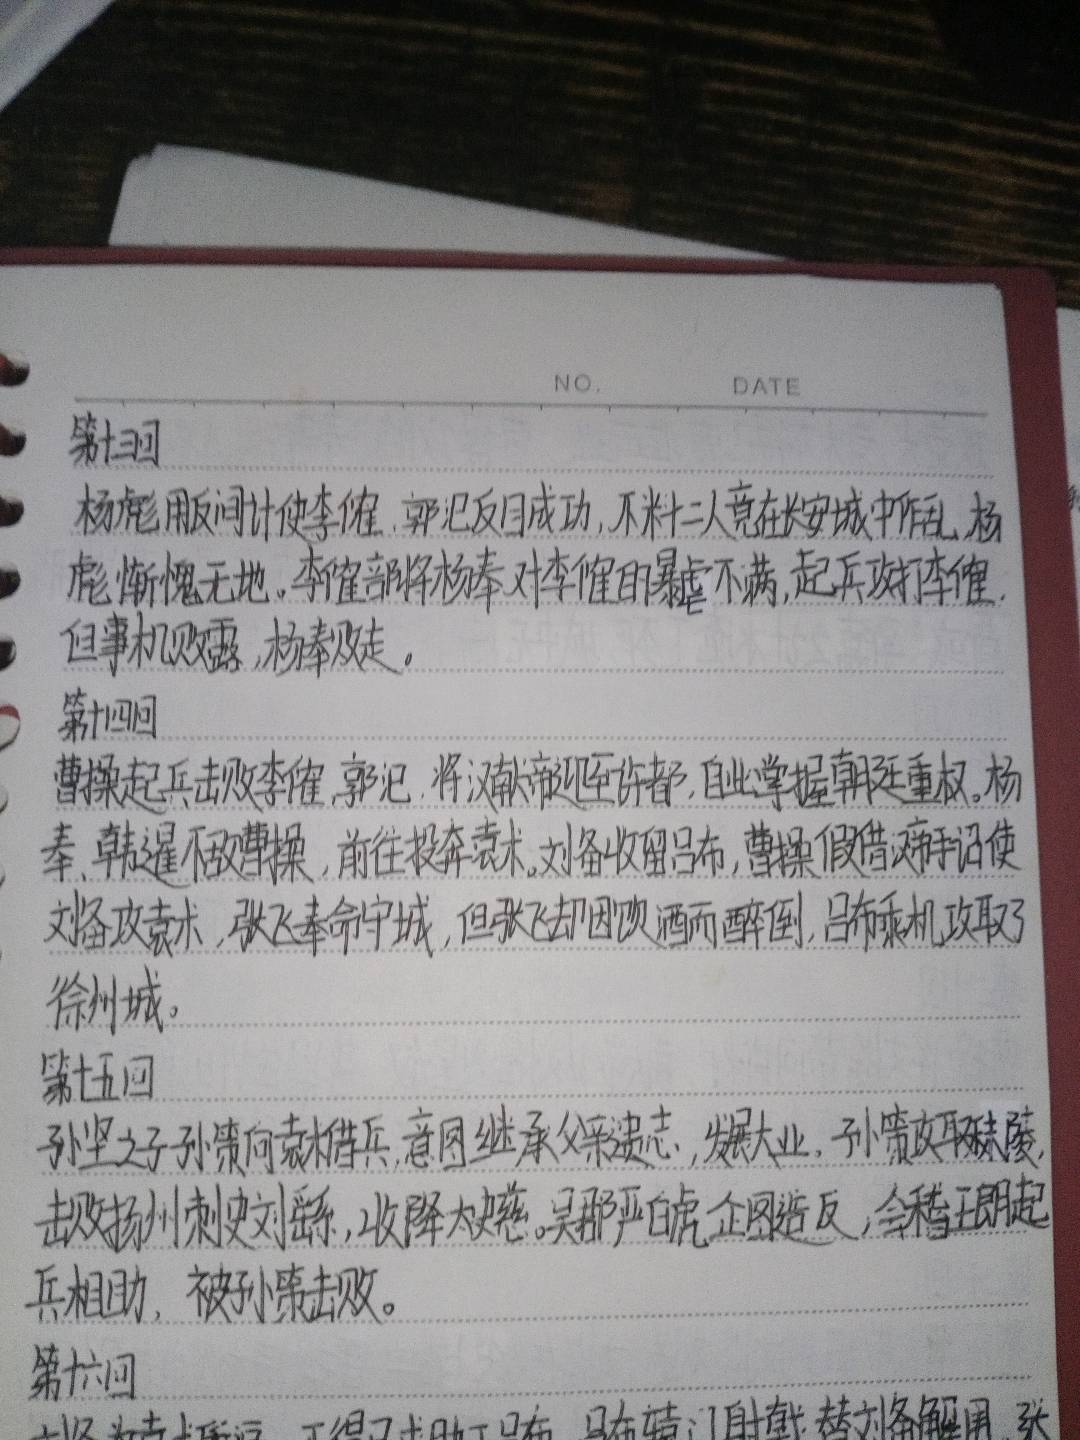 NO. DATE
第十三回
杨彪用反间计使李傕、郭汜反目成功,不料二人竟在长安城中作乱,杨
彪惭愧无地。李傕部将杨奉对李傕的暴虐不满,起兵攻打李傕,
但事机败露,杨奉败走。
第十四回
曹操起兵击败李傕、郭汜,将汉献帝迎至许都,自此掌握朝廷重权。杨
奉、韩暹不敌曹操,前往投奔袁术。刘备收留吕布,曹操假借汉帝手诏使
刘备攻袁术,张飞奉命守城,但张飞却因饮酒而醉倒,吕布乘机攻取了
徐州城。
第十五回
孙坚之子孙策向袁术借兵,意图继承父亲遗志,发展大业。孙策攻取秣陵,
击败扬州刺史刘繇,收降太史慈。吴郡严白虎企图造反,会稽王朗起
兵相助,被孙策击败。
第十六回
不得已求助于吕布,吕布辕门射戟,替刘备解围,张